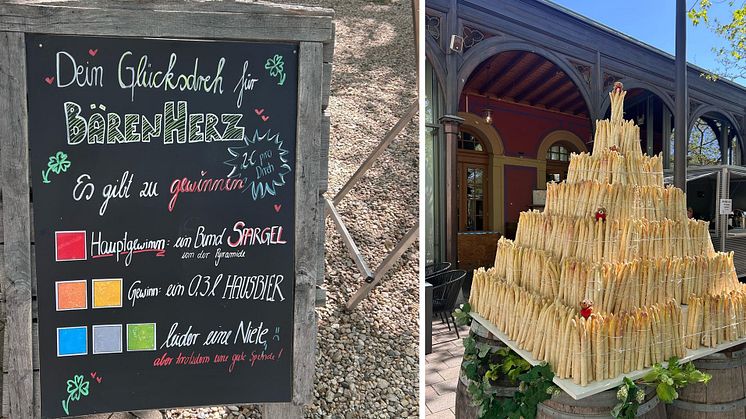 Dein Glücksdreh für
BÄRENHERZ
2€ pro
Dreh
Es gibt zu gewinnen
Hauptgewinn: ein Bund SPARGEL
von der Pyramide
Gewinn: ein 0,3l HAUSBIER
leider eine Niete
aber trotzdem eine gute Spende!